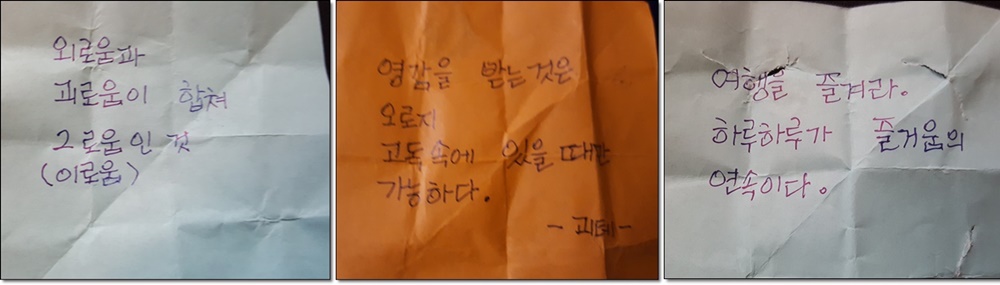 외로움과
괴로움이 합쳐
그로움인 것
(이로움)
영감을 받는것은
오로지
고독속에 있을때만
가능하다.
- 괴테 -
여행을 즐겨라.
하루하루가 즐거움의
연속이다.